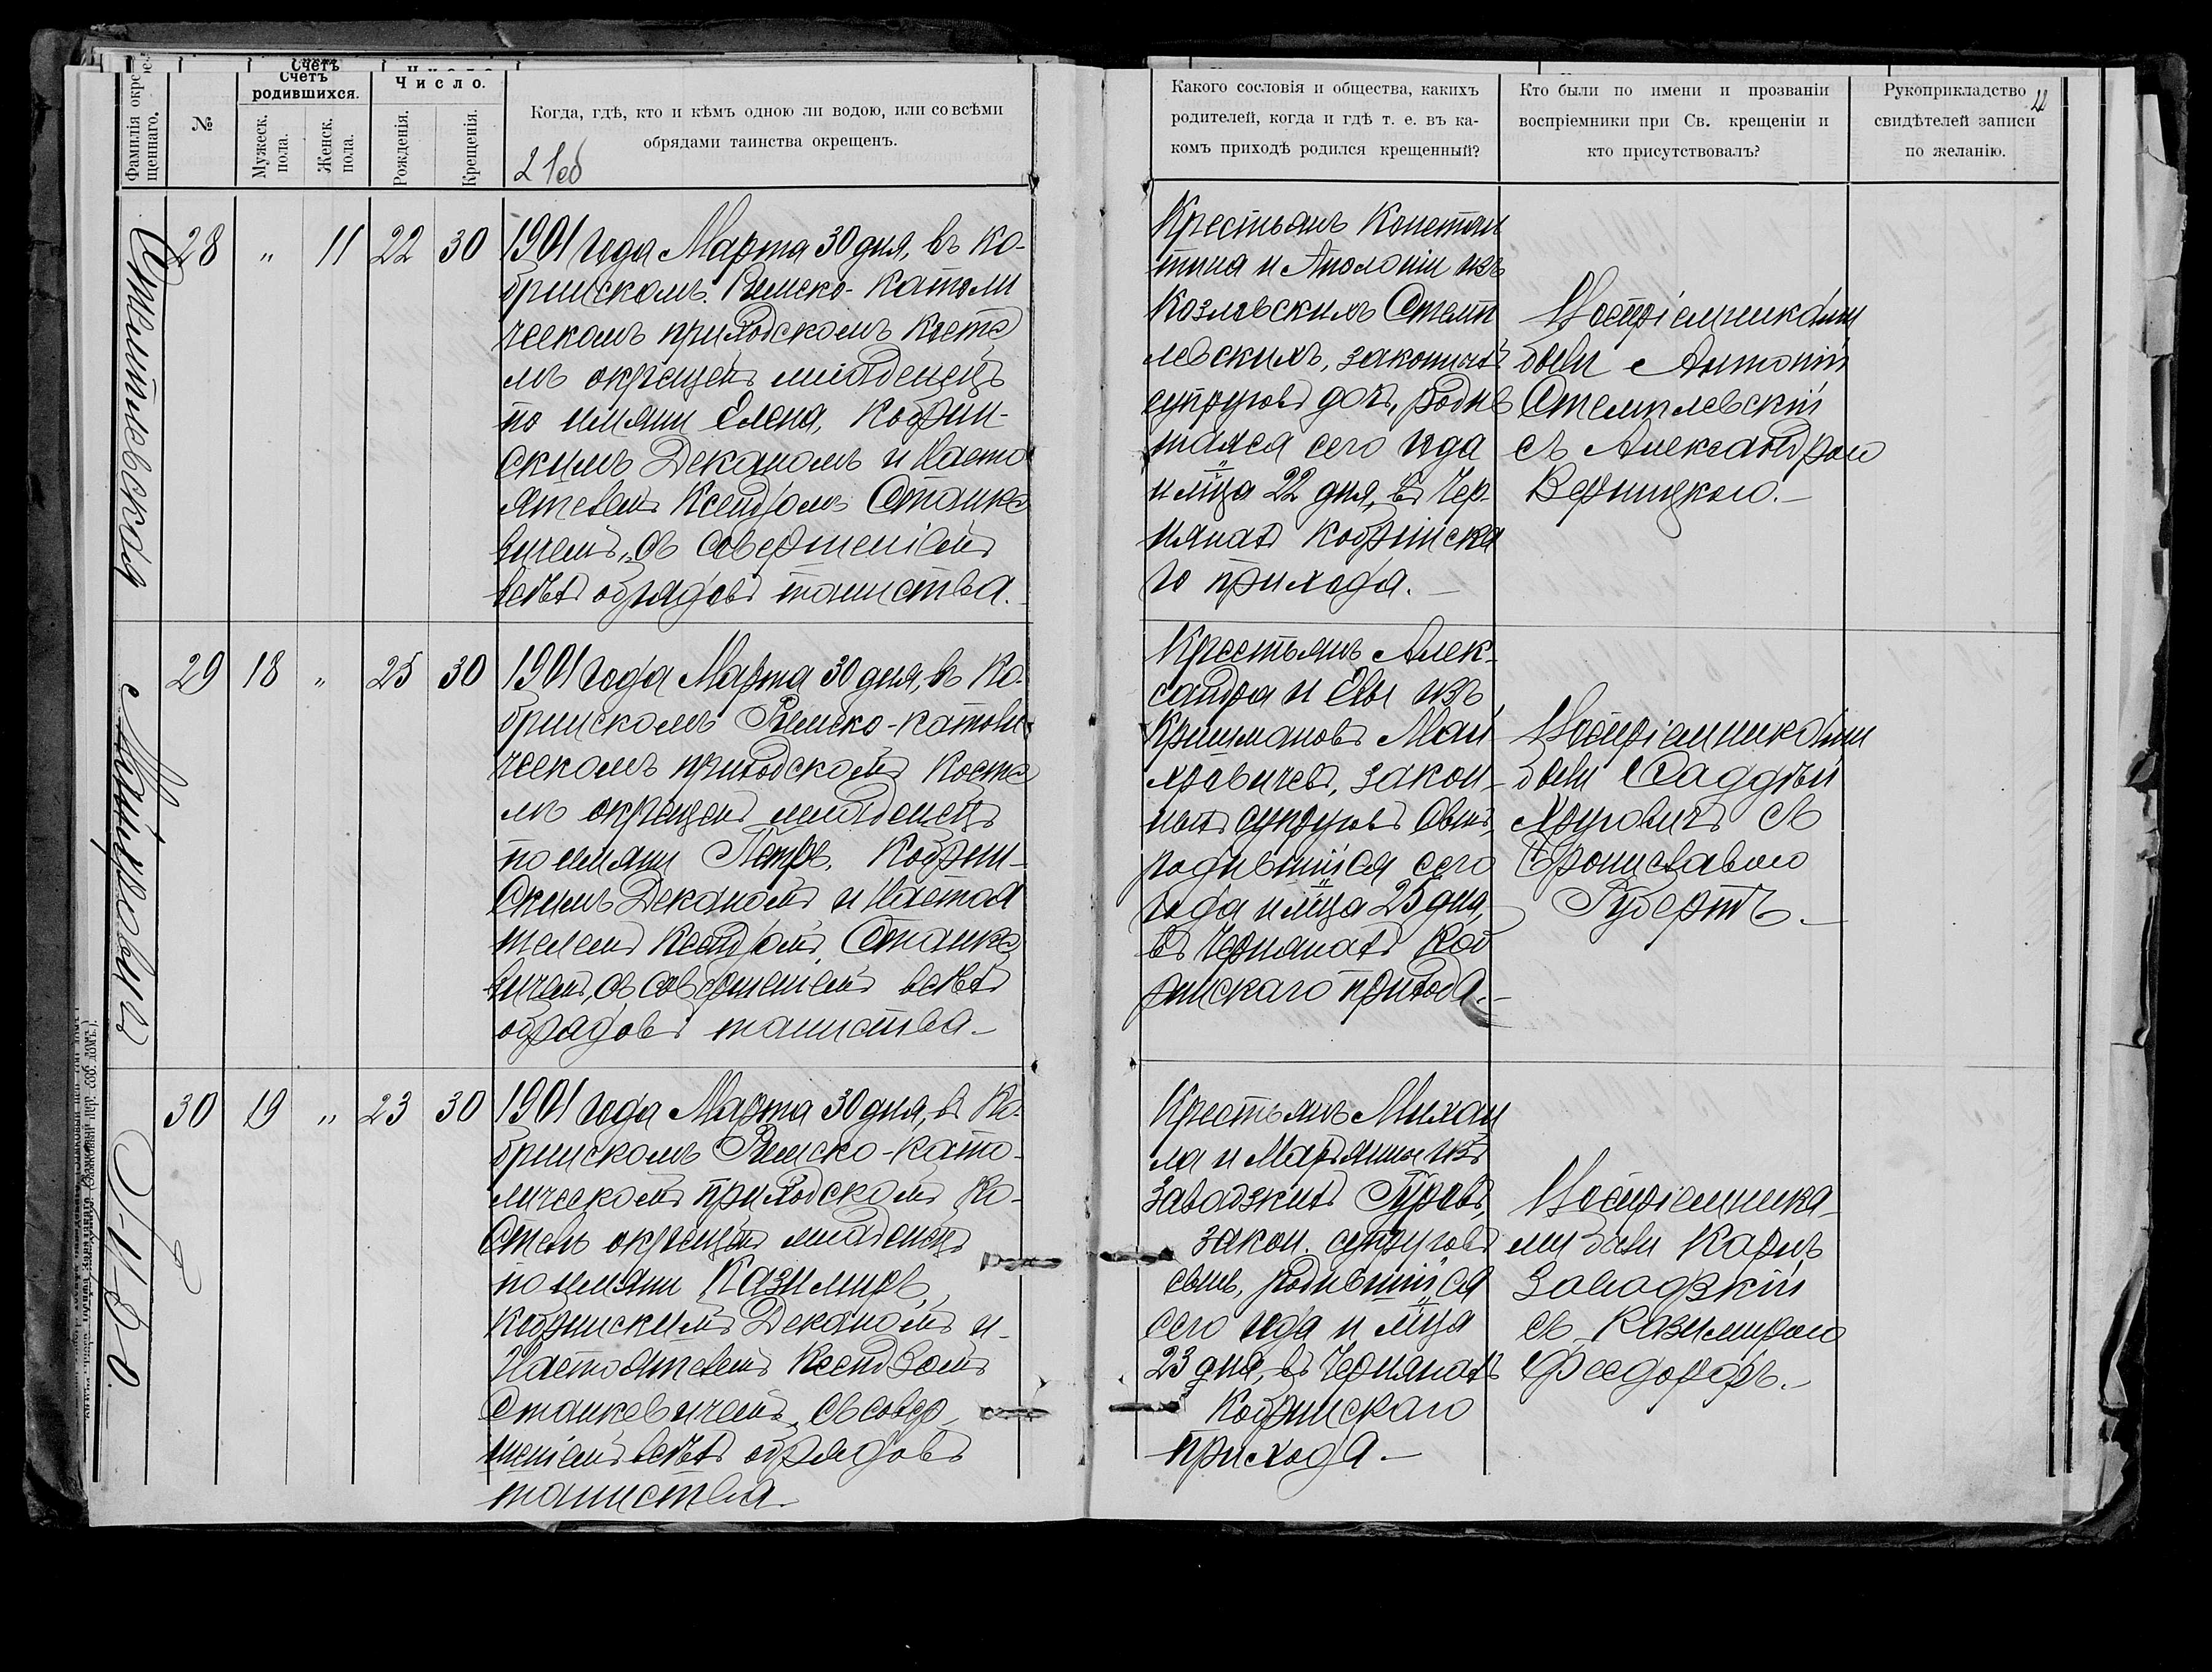 Фамилія окре-
щеннаго.
№
Счетъ
Счетъ
родившихся.
Мужеск.
пола.
Женск.
пола.
Число.
Рожденія.
Крещенія.
Когда, гдѣ, кто и кѣмъ одною ли водою, или со всѣми
обрядами таинства окрещенъ.
21об
28 „ 11 22 30
1901 года Марта 30 дня, въ Ко-
бринскомъ Римско-Католи
ческомъ приходскомъ Косте
лѣ окрещенъ младенецъ
по имяни Елена, Кобрин-
скимъ Деканомъ и Насто
ятелемъ Ксендзомъ Станке
вичемъ, съ совершеніемъ
всѣхъ обрядовъ таинства.
Маціровичъ
29 18 „ 25 30
1901 года Марта 30 дня, въ Ко-
бринскомъ Римско-Католи
ческомъ приходскомъ Косте
лѣ окрещенъ младенецъ
по имяни Петръ, Кобрин-
скимъ Деканомъ и Настоя
телемъ Ксендзомъ Станке
вичемъ, съ совершеніемъ всѣхъ
обрядовъ таинства.
30 19 „ 23 30
1901 года Марта 30 дня, въ Ко-
бринскомъ Римско-Като-
лическомъ приходскомъ Ко-
стелѣ окрещенъ младенецъ
по имяни Казимиръ,
Кобринскимъ Деканомъ и
Настоятелемъ Ксендзомъ
Станкевичемъ, съ совер-
шеніемъ всѣхъ обрядовъ
таинства.
Какого сословія и общества, какихъ
родителей, когда и гдѣ т. е. въ ка-
комъ приходѣ родился крещенный?
Кто были по имени и прозваніи
воспріемники при Св. крещеніи и
кто присутствовалъ?
Рукоприкладство
свидѣтелей записи
по желанію.
22
Крестьянъ Констан
тина и Аполоніи изъ
Козловскихъ Стемп
левскихъ, законныхъ
супруговъ дочь, родив
шаяся сего года
и м-ца 22 дня, въ Чер-
нянахъ Кобринска
го прихода.
Воспріемниками
были Антоній
Стемплевскій
съ Александрою
Верницкою.
Крестьянъ Алек-
сандра и Евы изъ
закон-
ныхъ супруговъ сынъ,
родившійся сего
года и м-ца 25 дня,
въ Чернянахъ Коб
ринскаго прихода.
Воспріемниками
были Фаддѣй
съ
Брониславою
Губертъ.
Крестьянъ Михаи
ла и Маріянны изъ
Завадзкихъ
закон. супруговъ
сынъ, родившійся
сего года и м-ца
23 дня, въ Чернянахъ
Кобринскаго
прихода.
Воспріемника-
ми были Карлъ
Завадзкій
съ Казимирою